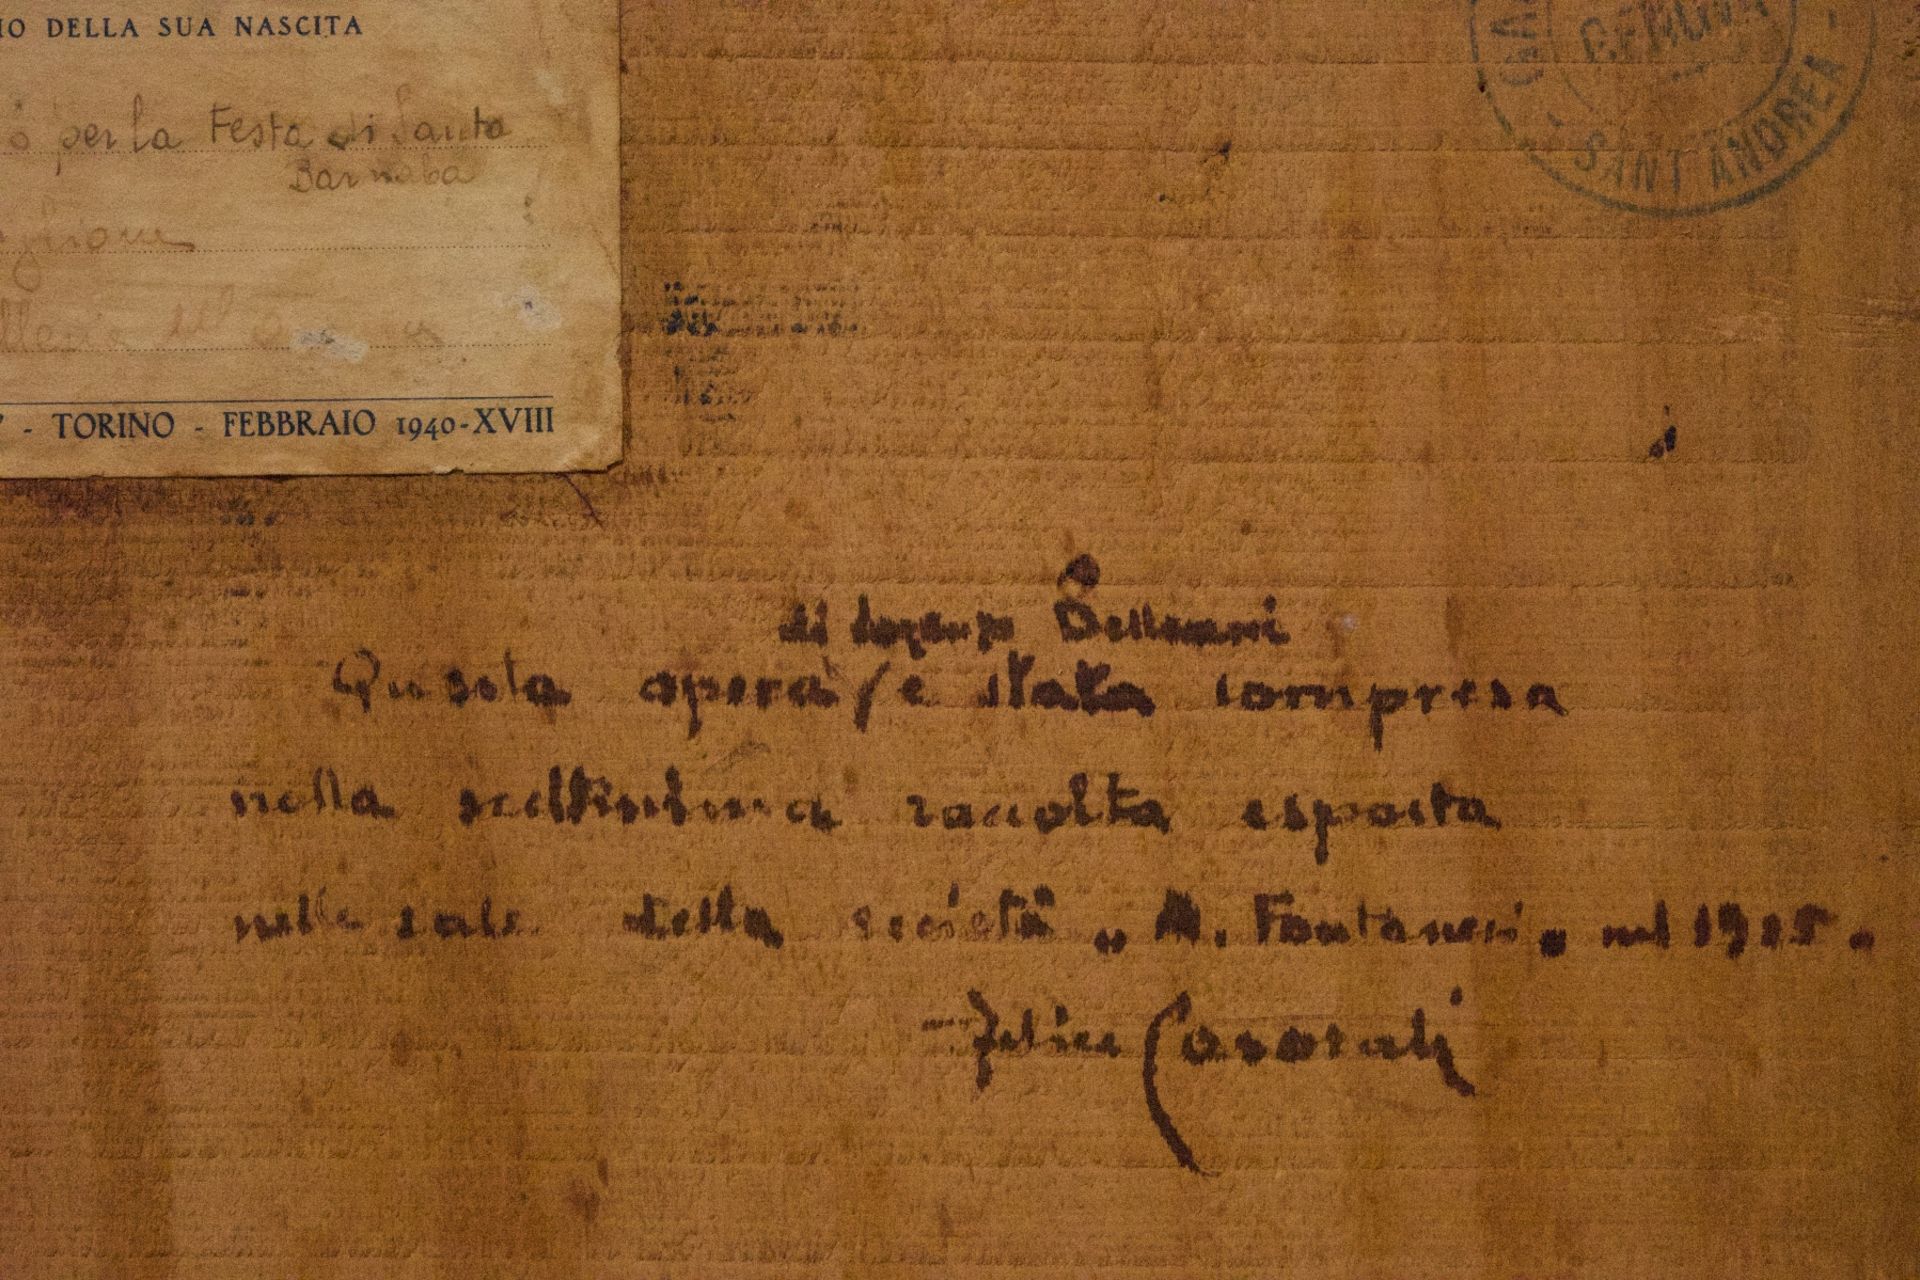 IO DELLA SUA NASCITA
per la Festa di Santa
Barnaba
- TORINO - FEBBRAIO 1940-XVIII
GENOVA
SANT'ANDREA -
di Lorenzo Delleani
Questa opera / e stata compresa
nella sceltissima raccolta esposta
nelle sale della società „ A. Fontanesi „ nel 1925.
Felice Casorati